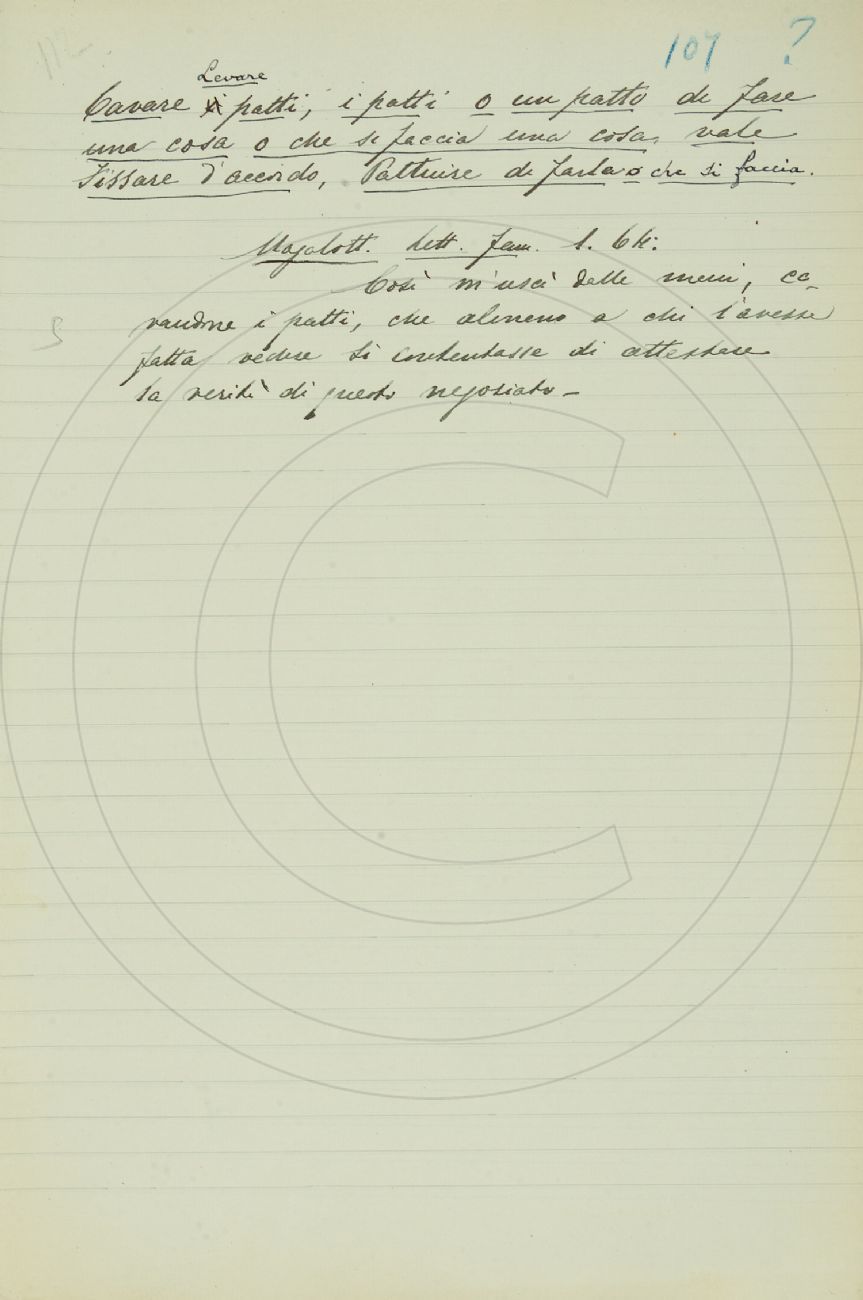 112
107 ?
Levare
Cavare patti, i patti o un patto di fare
una cosa o che si faccia una cosa, vale
Fissare d'accordo, Pattuire di farla o che si faccia.
Magalott. Lett. fam. 1. 64:
Così m'uscì delle mani, ca-
vandone i patti, che almeno a chi l'avesse
fatta vedere si contentasse di attestare
la verità di questo negoziato –